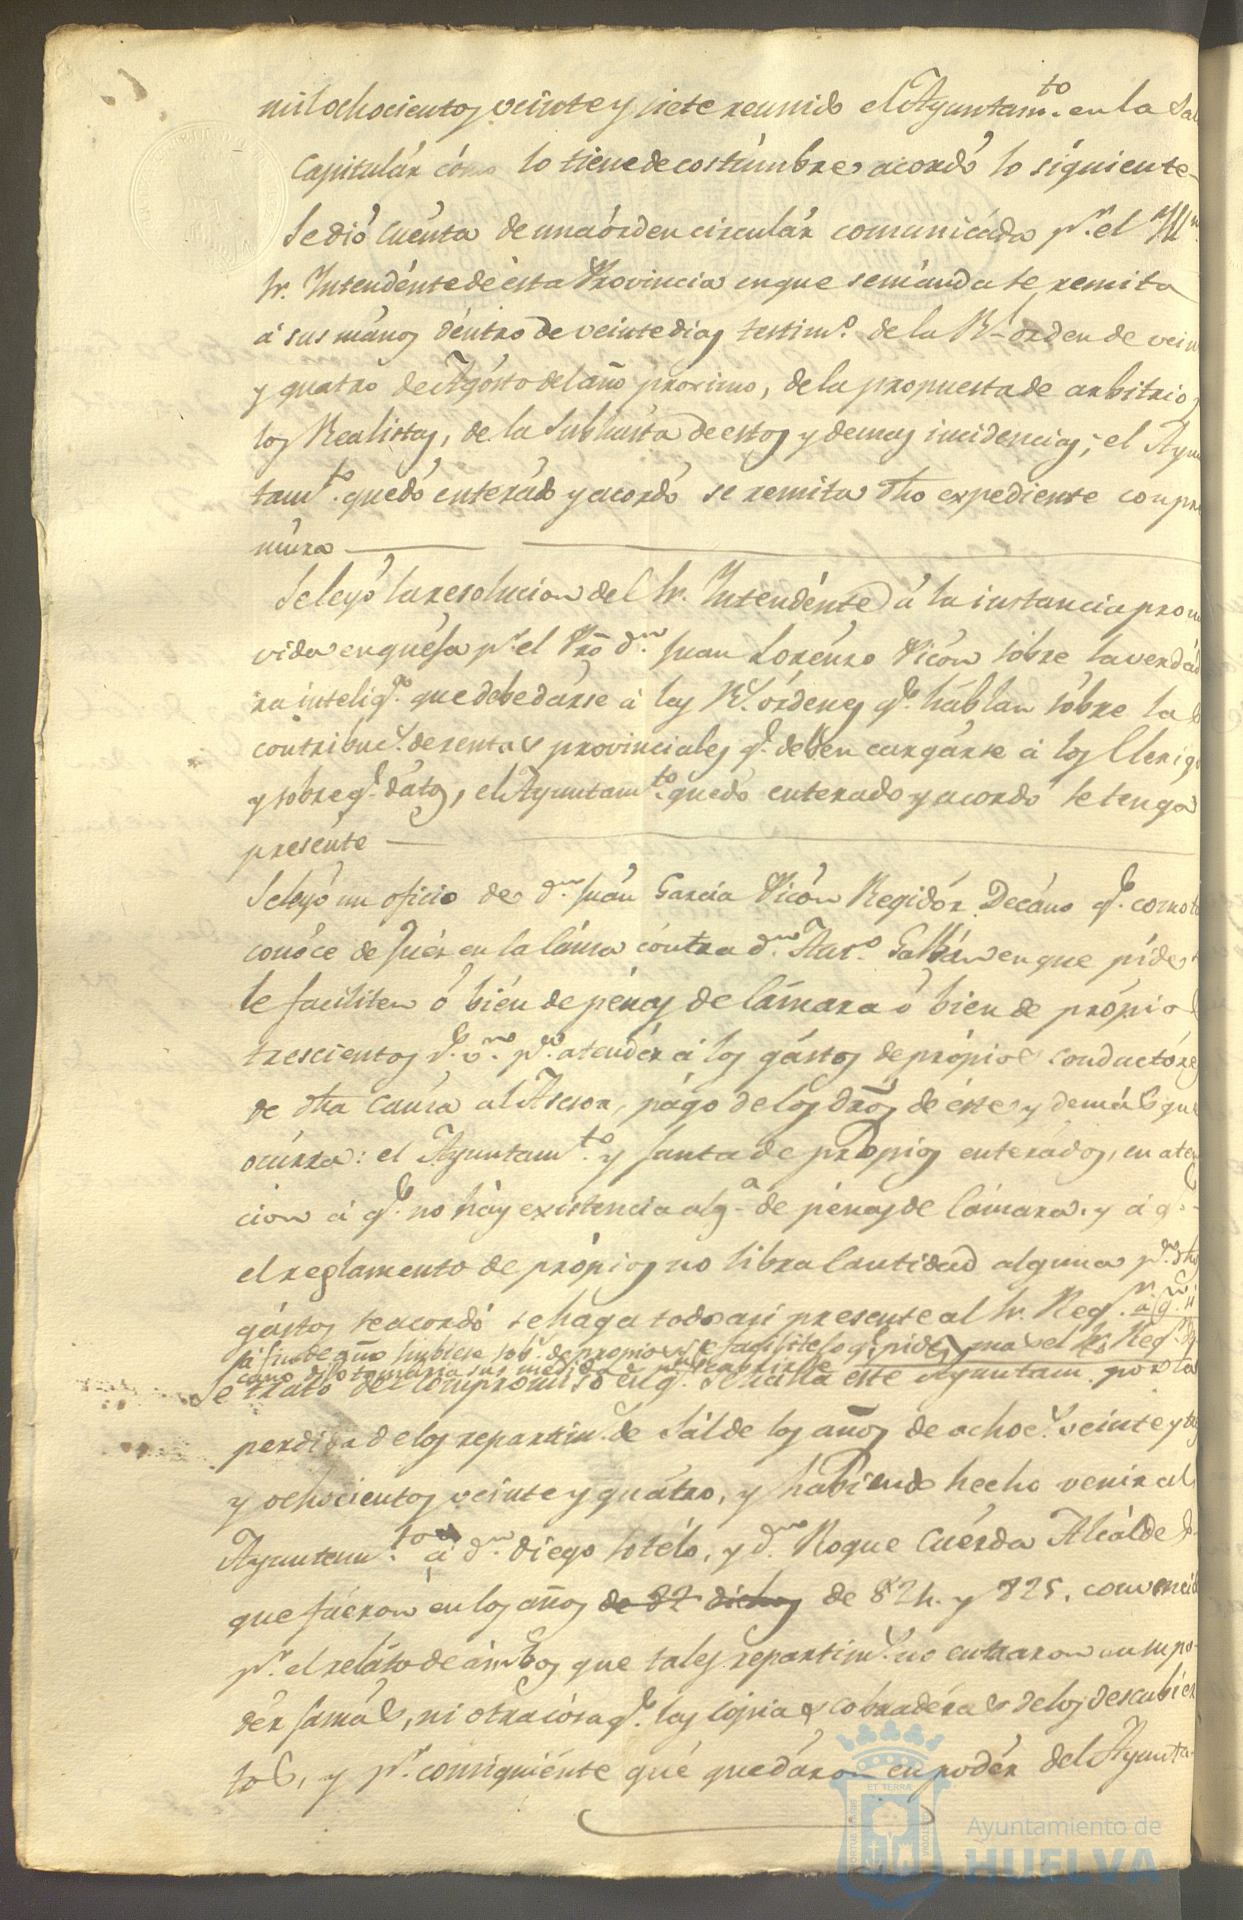 mil ochocientos veinte y siete reunido el Ayuntam.to en la Sal
Capitulár cómo lo tiene de costúmbre acordó lo siguiente
Se dió cuénta de una órden circulár comunicáda p.r el
Sr. Intendénte de ésta Provincia en que se mánda se remita
á sus mános déntro de veinte dias testim.o de la Rl. órden de vein
y quatro de Agósto del año proximo, de la propuesta de arbitrios
los Realistas, de la Subhasta de estos y demas incidencias; el Ayun
tam.to quedó enterádo y acordó se remita dho expediente con pre
múra
Se leyó la resolucion del Sr. Intendénte á la instancia promo
vida en quéja p.r el Pro d.n Juan Lorénzo Picón sóbre la verdád
ra intelig.a que debe dárse á las Rs. órdenes q.e háblan sóbre la
contribuc.n de rentas provinciales q.e deben cargárse á los Clerig
y sobre q.e dátos, el Ayuntam.to quedó enterado y acordó se tenga
presénte
Se leyó un oficio de d.n Juán Garcia Picón Regidór Decáno q.e como
conóce de Juéz en la cáusa cóntra d.n Galbán en que píde
le faciliten ó bién de pénas de Cámara ó bien de própios
trescientos r.s v.n p.a atendér á los gástos de própios conductóres
de dha Cáusa al Asesor, págo de los dros de éste y demás que
ocúrra: el Ayuntam.to y Junta de própios enterádos, en aten
cion á q.e no háy existencia alg.a de pénas de Cámara, y á q.e
el reglamento de própios no libra Cantidad alguna p.a dhos
gástos se acordó se haga todo asi presente al Sr. Reg.r
á fin de año hubiese sob.te de propios se facilite lo q.e pide, mas el Sr. Reg.r De
cano dijo tomaria sus medidas p.a
Se trató del compromiso en q.e se halla este Ayuntam.to por la
perdida de los repartim.s de Sál de los años de ochoc.s veinte y tres
y ochocientos veinte y quátro, y habiendo hecho venir al
Ayuntam.to á d.n diego Sotélo, y d.n Roque Cuérda Alcálde
que fuéron en los años de 82 dichos de 824. y 825. convenci
p.r el reláto de ámbos que tales repartim.s no entraron en su po
dér jamás, ni otra cósa q.e las cópias cobradéras de los descubiér
tos, y p.r consiguiénte que quedáron en podér del Ayunta
ET TERRÆ
Ayuntamiento de
HUELVA